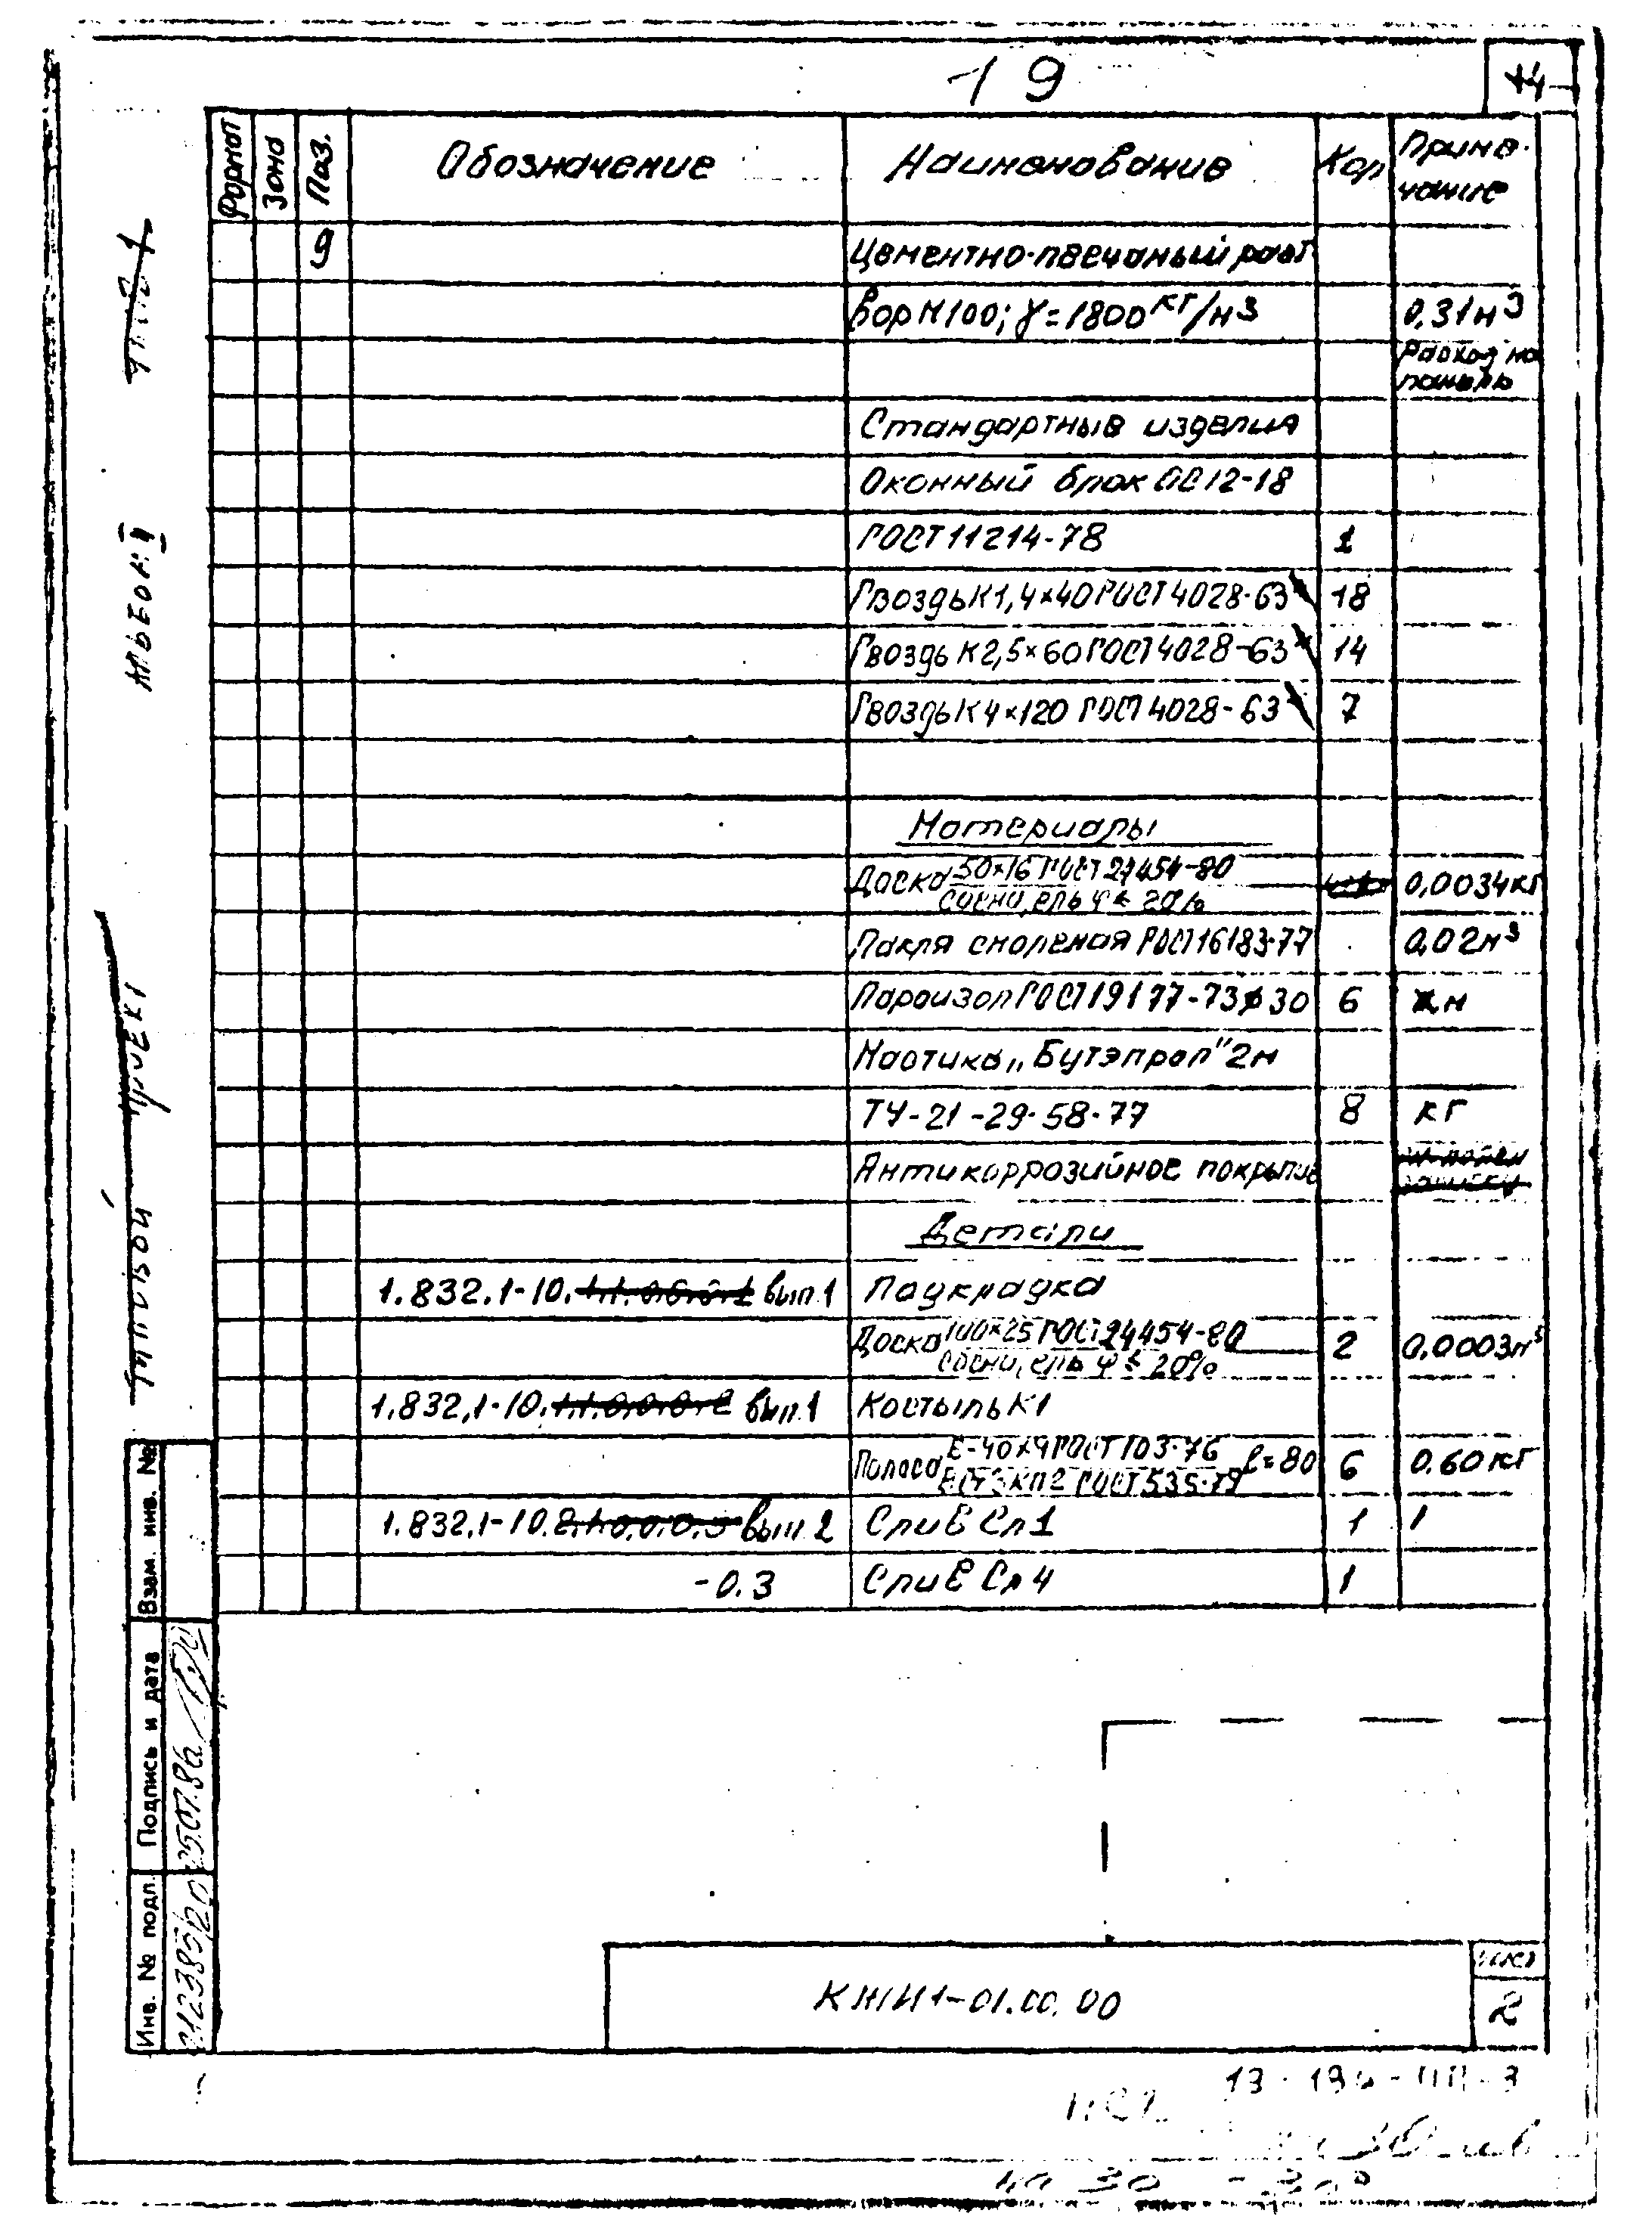 19
14
Формат Зона Поз. Обозначение Наименование Кол Приме-
чание
9 Цементно-песчаный раст
вор М100; γ=1800кг/м3 0,31м3
Расход на
панель
Стандартные изделия
Оконный блок ОС12-18
ГОСТ 11214-78 1
Гвоздь К1,4×40 ГОСТ 4028-63 18
Гвоздь К2,5×60 ГОСТ 4028-63 14
Гвоздь К4×120 ГОСТ 4028-63 7
Материалы
Доска 50×16 ГОСТ 24454-80 0,0034кг
сосна, ель φ ≤ 20%
Пакля смоленая ГОСТ 16183-77 0,02м3
Пороизол ГОСТ 19177-73 ø30 6 м
Мастика „Бутэпрол" 2м
ТУ-21-29-58-77 8 кг
Антикоррозийное покрытие
Детали
1.832.1-10. вып.1 Подкладка
Доска 100×25 ГОСТ 24454-80 2 0,0003м3
сосна, ель φ ≤ 20%
1.832.1-10. вып.1 Костыль К1
Полоса Б-40×4 ГОСТ 103-76 ℓ=80 6 0,60кг
ВСт3кп2 ГОСТ 535-79
1.832.1-10. вып 2 Слив Сл1 1 1
-0.3 Слив Сл4 1
Типовой проект
Альбом II
Взам. инв. №
Подпись и дата
25.07.86
Инв. № подл.
КЖИ1-01.00.00
лист
2